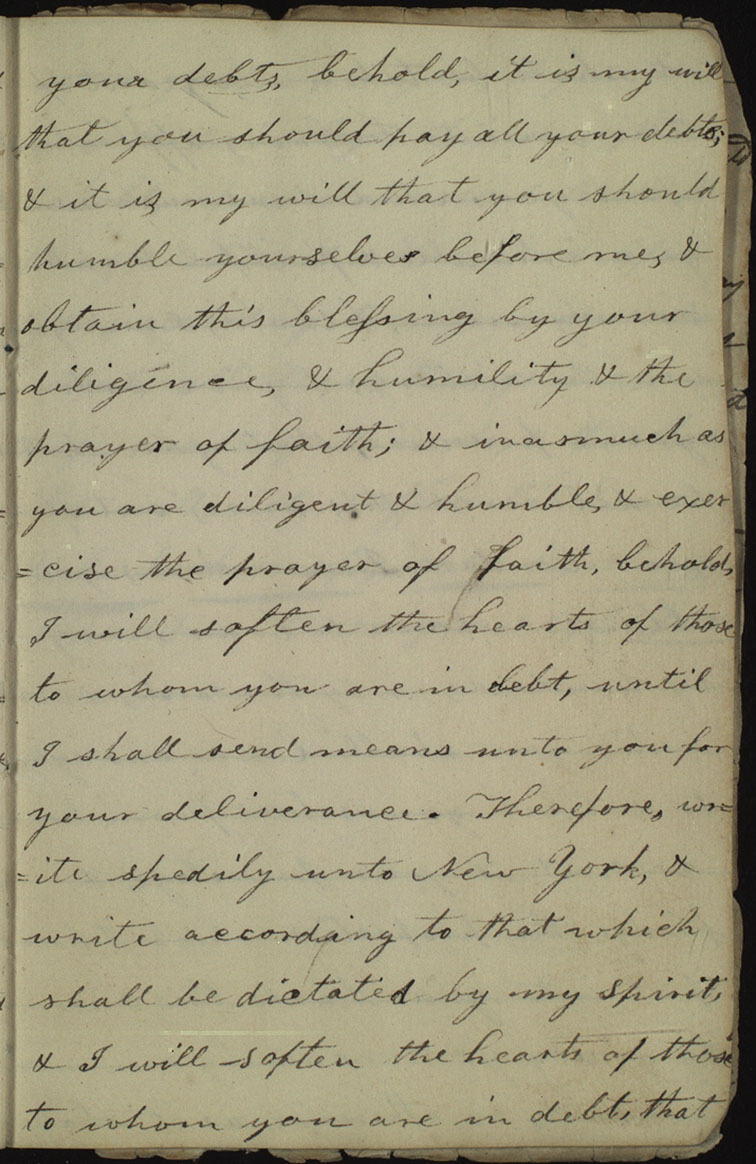 your debts, behold, it is my will
that you should pay all your debts;
& it is my will that you should
humble yourselves before me, &
obtain this blessing by your
diligence, & humility & the
prayer of faith; & inasmuch as
you are diligent & humble, & exer
=cise the prayer of faith, behold,
I will soften the hearts of those
to whom you are in debt, until
I shall send means unto you for
your deliverance. Therefore, wr=
=ite spedily unto New York, &
write according to that which
shall be dictated by my spirit,
& I will soften the hearts of those
to whom you are in debt, that